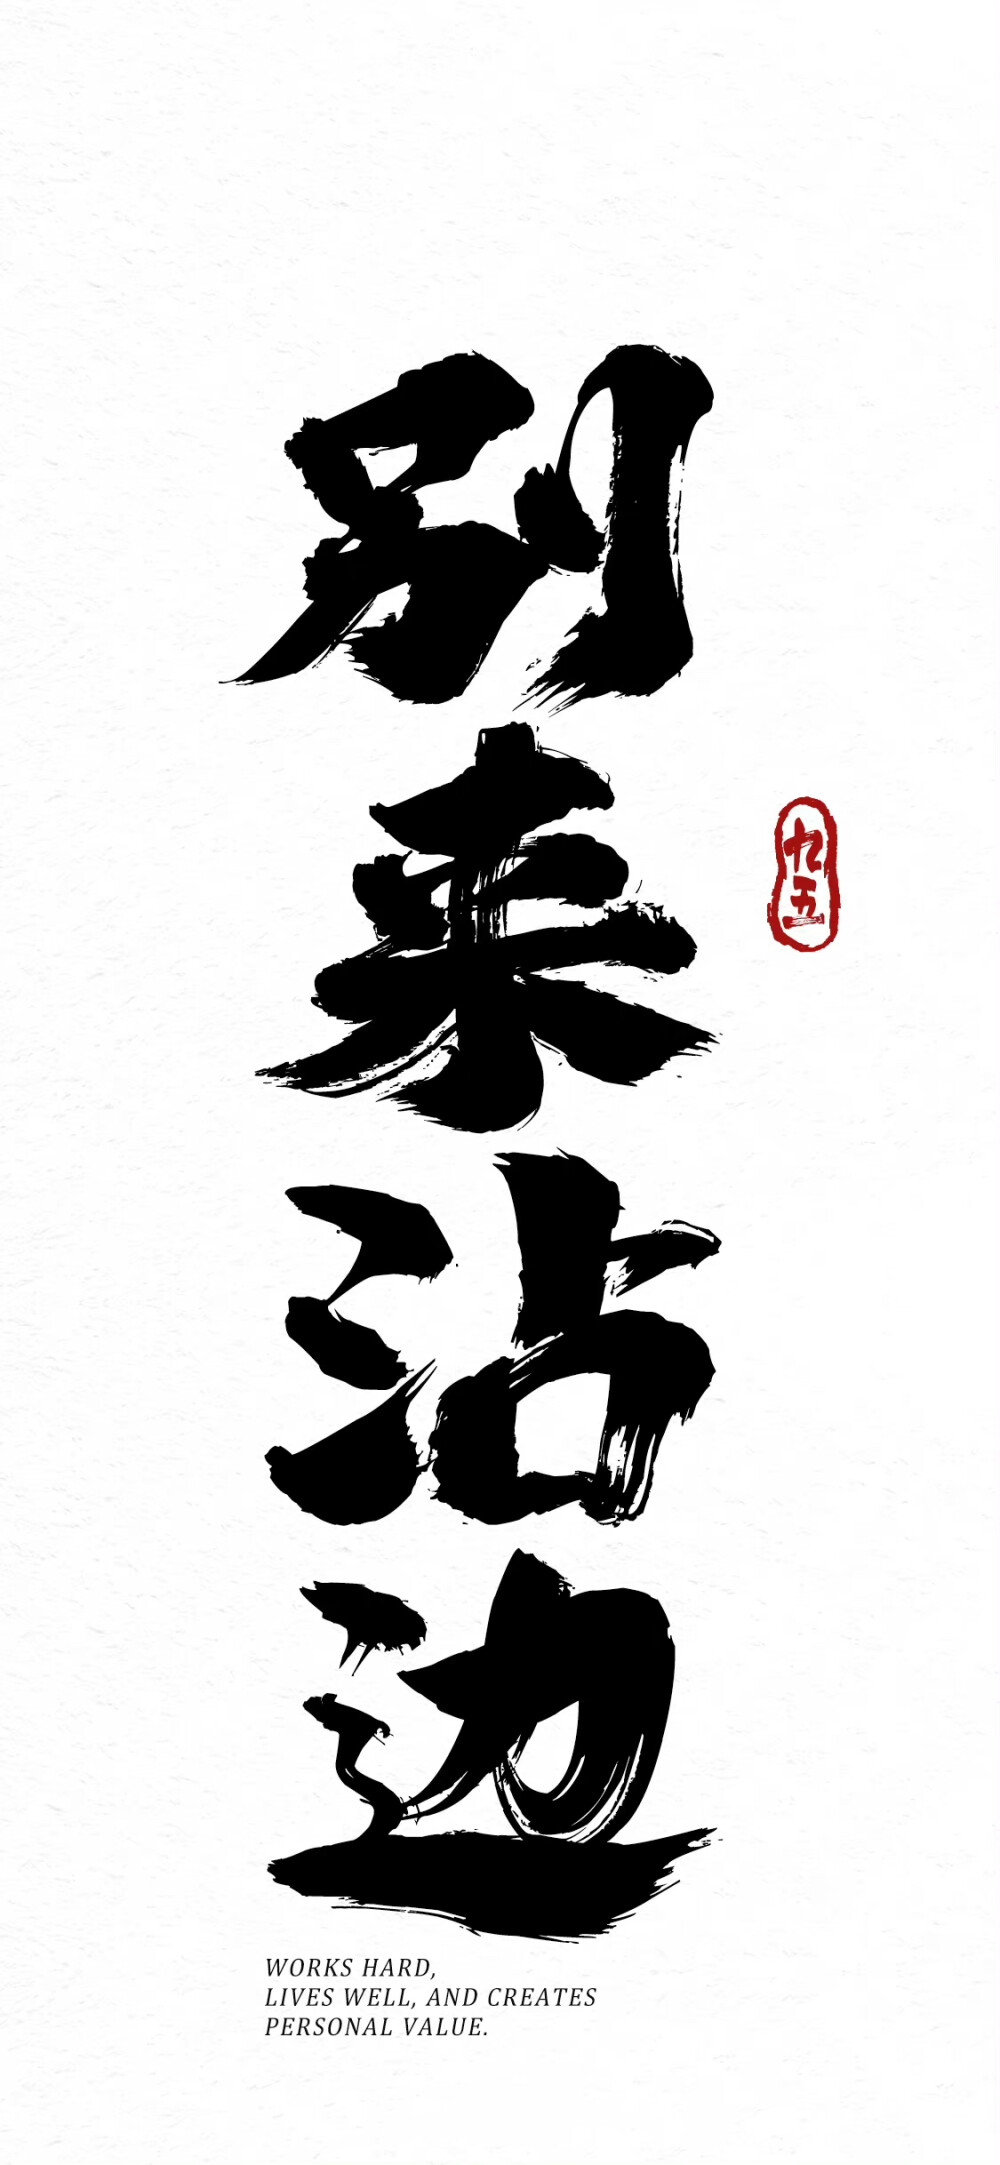 别来沾边
九五
WORKS HARD,
LIVES WELL, AND CREATES
PERSONAL VALUE.